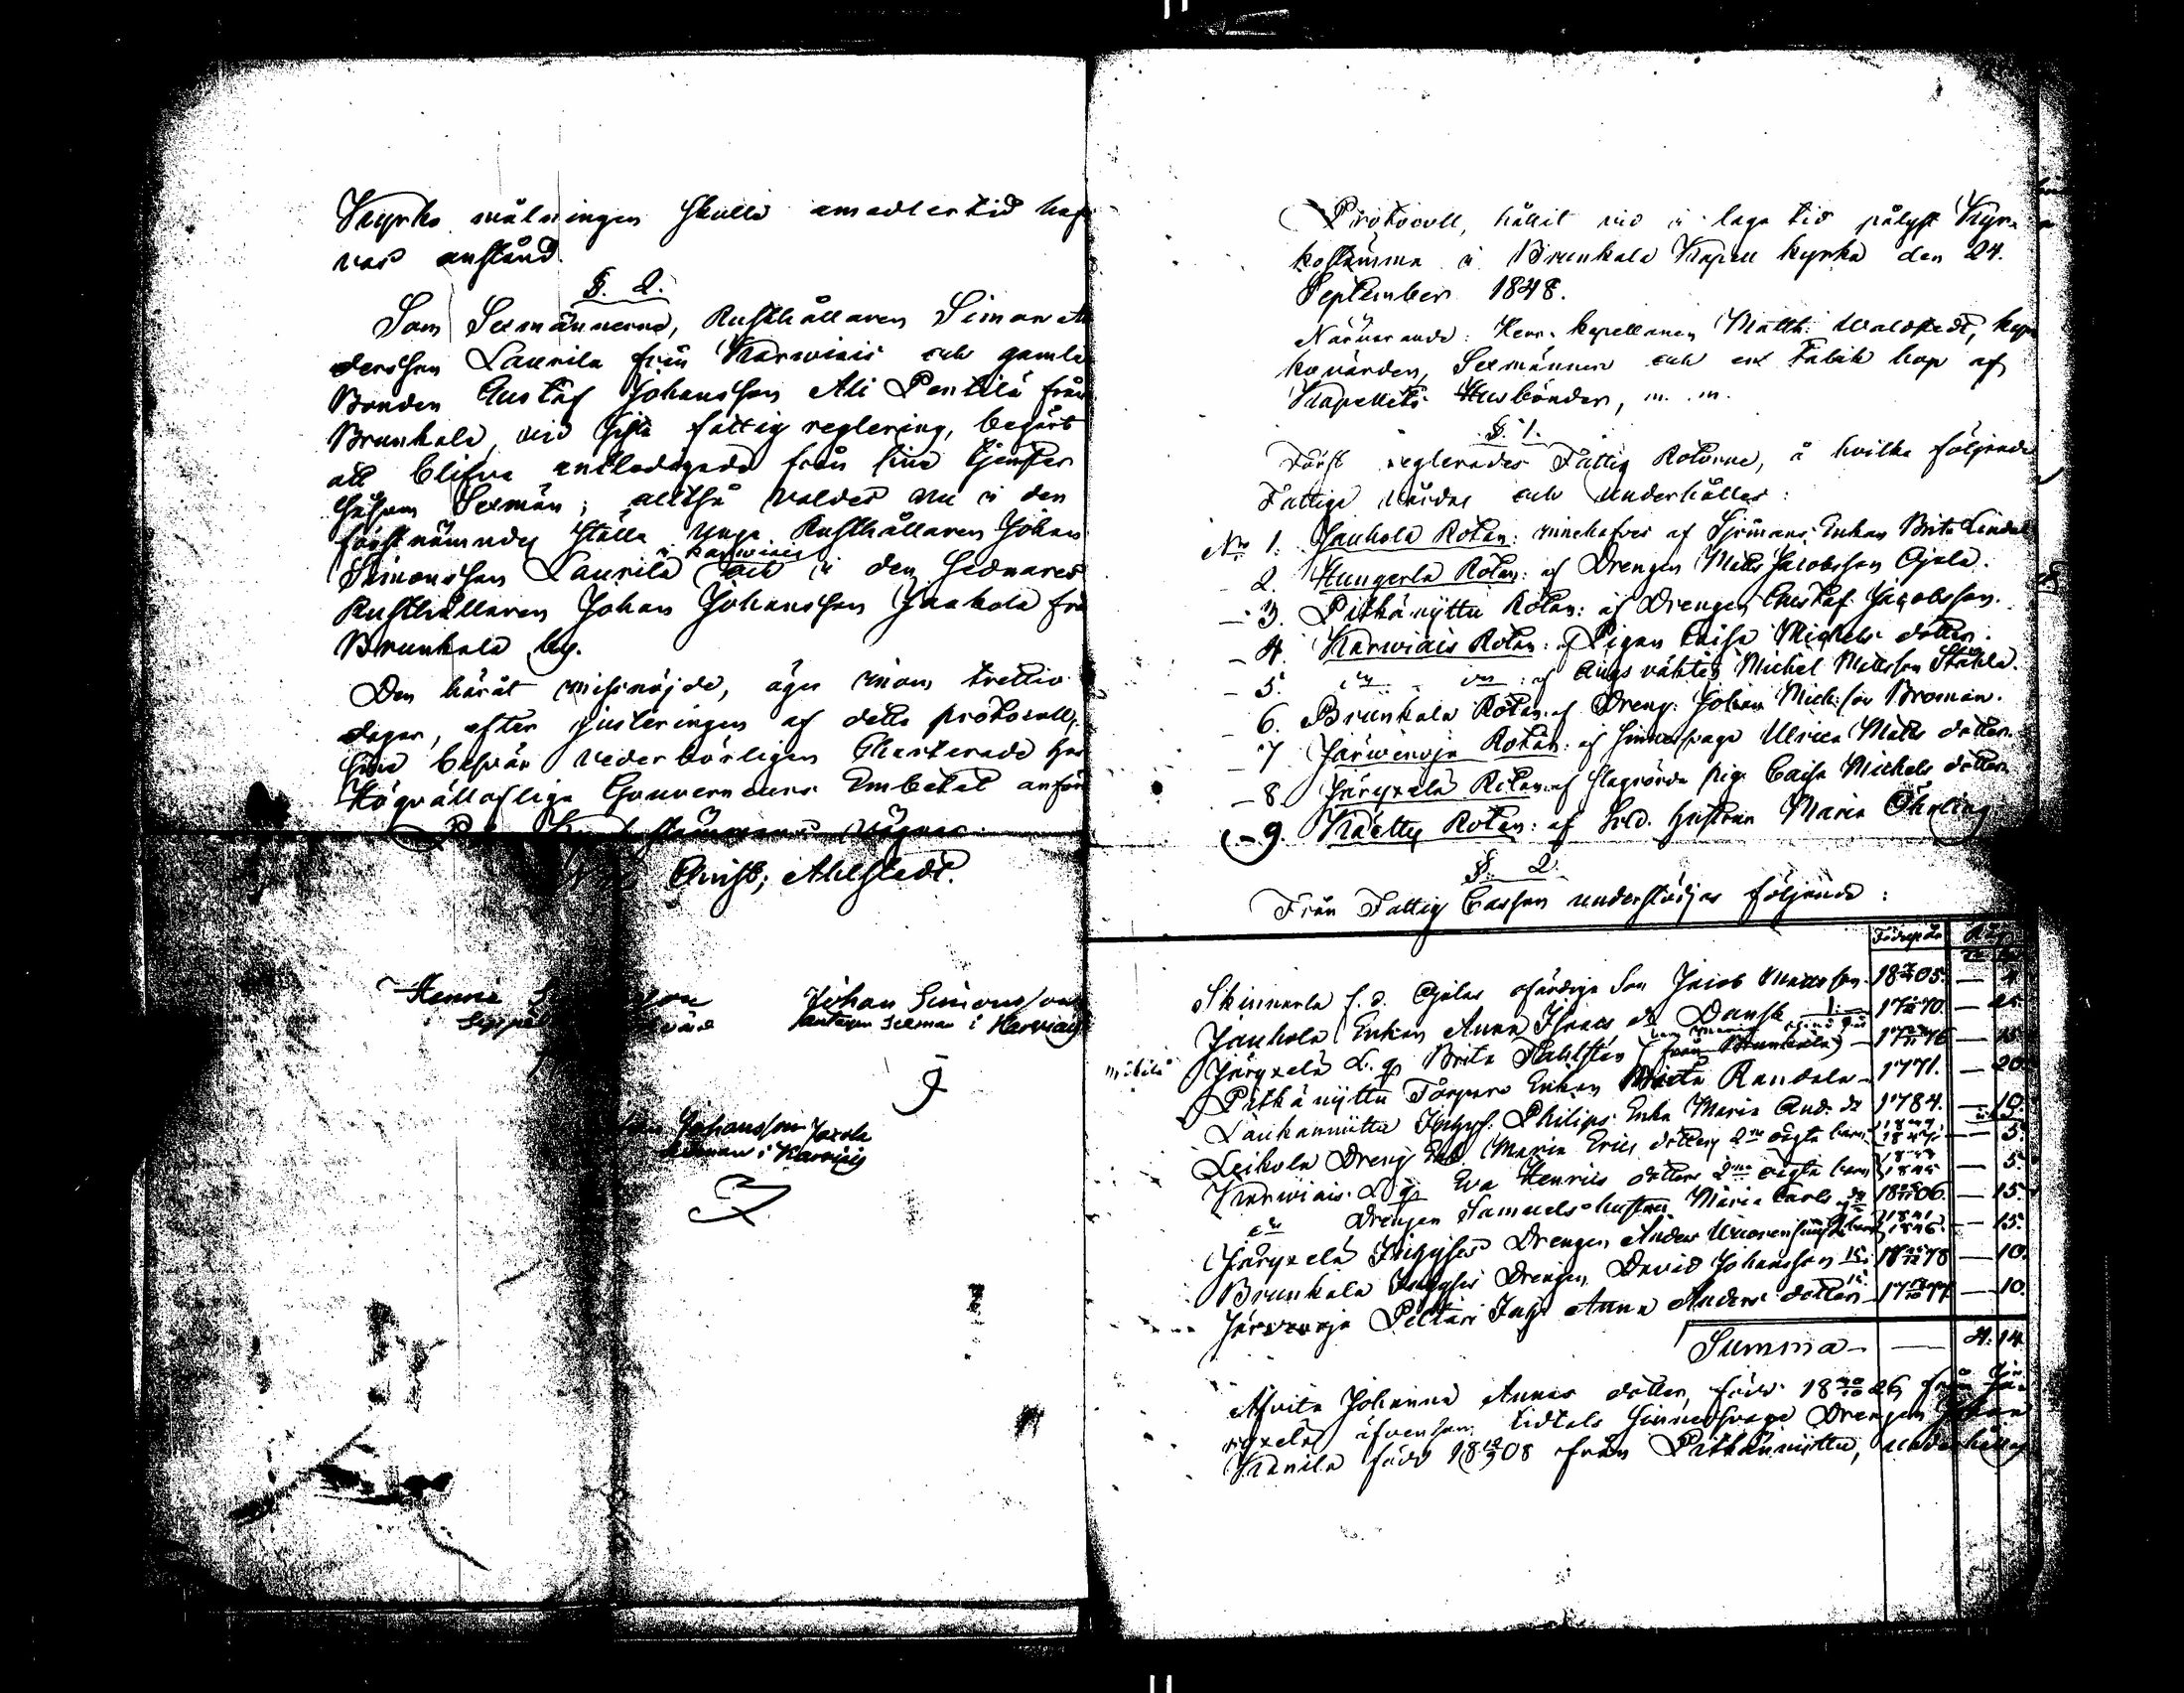 Kyrko målningen skulle emedlertid haf
va anstånd.
§. 2.
Som Sexmännerne, Rusthållaren Simon An
dersson Laurila från Karwiais och gamle
Bonden Gustaf Johansson Ali Pentilä från
Brunkala, vid sista fattig reglering, begärt
att blifva entledigade från sina tjenster
såsom Sexmän; alltså valdes nu i den
förstnämndes ställe unge Rusthållaren Johan
Simonsson Laurila i Karwiais och i den sednares
Rusthållaren Johan Johansson Jaakola från
Brunkala by.
Den häråt missnöjde, äger inom trettio
dagar, efter justeringen af detta protocoll,
sina besvär vederbörligen Charterade hos
Högvällofliga Gouverneurs Embetet anföra
stämmans vägnar:
Qvist; Ahlstedt.
Henric
Johan Simonsson
Sexman i Karviais
Johansson Jaxola
Sexman i Karviais
Protocoll, hållit vid i laga tid pålyst Kyr-
kostämma i Brunkala Kapell kyrka den 24.
September 1848.
Närvarande: Herr Kapellanen Matth: Waldstedt, kyr
kovärden, Sexmännen och en talrik hop af
Kapellets Husbönder, m. m.
§. 1.
Först reglerades Fattig Rotorne, å hvilka följande
Fattige vårdas och underhållas:
No 1. Jauhola Rotan: innehafves af Sjömans Enkan Brita Lindal
- 2. Kungerla Rotan: af Drengen Matts Jacobsson Ojala.
- 3. Pitkänyttu Rotan: af Drengen Gustaf Jacobsson.
- 4. Karwiais Rotan: af Pigan Caisa Michels dotter.
- 5. do do: af Ångs väktn Michel Mattsson Ståhle.
- 6. Brunkala Rotan: af Dreng: Johan Mich:son Broman.
- 7 Järvenoja Rotan: af sinnessvage Ulrica Matts dotter
- 8. Järyxelä Rotan: af slagrörda pig. Caisa Michels dotter
- 9. Käetty Rotan: af Sold. hustrun Maria Öhrling
§. 2.
Från Fattig Cassan understödjas följande:
Födsepår
Skinnarla f. d. Ojalas ofärdige Son Jacob Mattsson 18 05. — 4
Jauhola Enkan Anna Isaacs dr Dansk 17 70. — 25.
Järyxelä L. g. Brita Stahlsten (från Brunkala) — 17 76 — 15.
Pitkänyttu Torpare Enkan Brita Randala — 1771. — 20
Laukanniittu Inhys: Philips Enka Maria And. dr 1784. — 10.
Leikola Dreng Enk Maria Erics dotters 2ne oägta barn — 5.
Karwiais L. g. Eva Henrics dotters 2ne oägta barn 1845 — 5.
do Drengen Samuels hustru Maria Carls dr 18 06. — 15.
Järyxelä Inhyses Drengen Anders 1846. — 15.
Brunkala Inhyses Drengen David Johansson 17 78 — 10.
Järvenoja Peltari Inhys Anna Anders dotter 17 77 — 10.
Summa — — 4. 14.
Afvita Johanna Annas dotter, född 18 26 från Jä-
ryxelä äfvensom tidtals sinnessvage Drengen Johan
Kanila född 18 08 från Pitkänniittu, underhålles